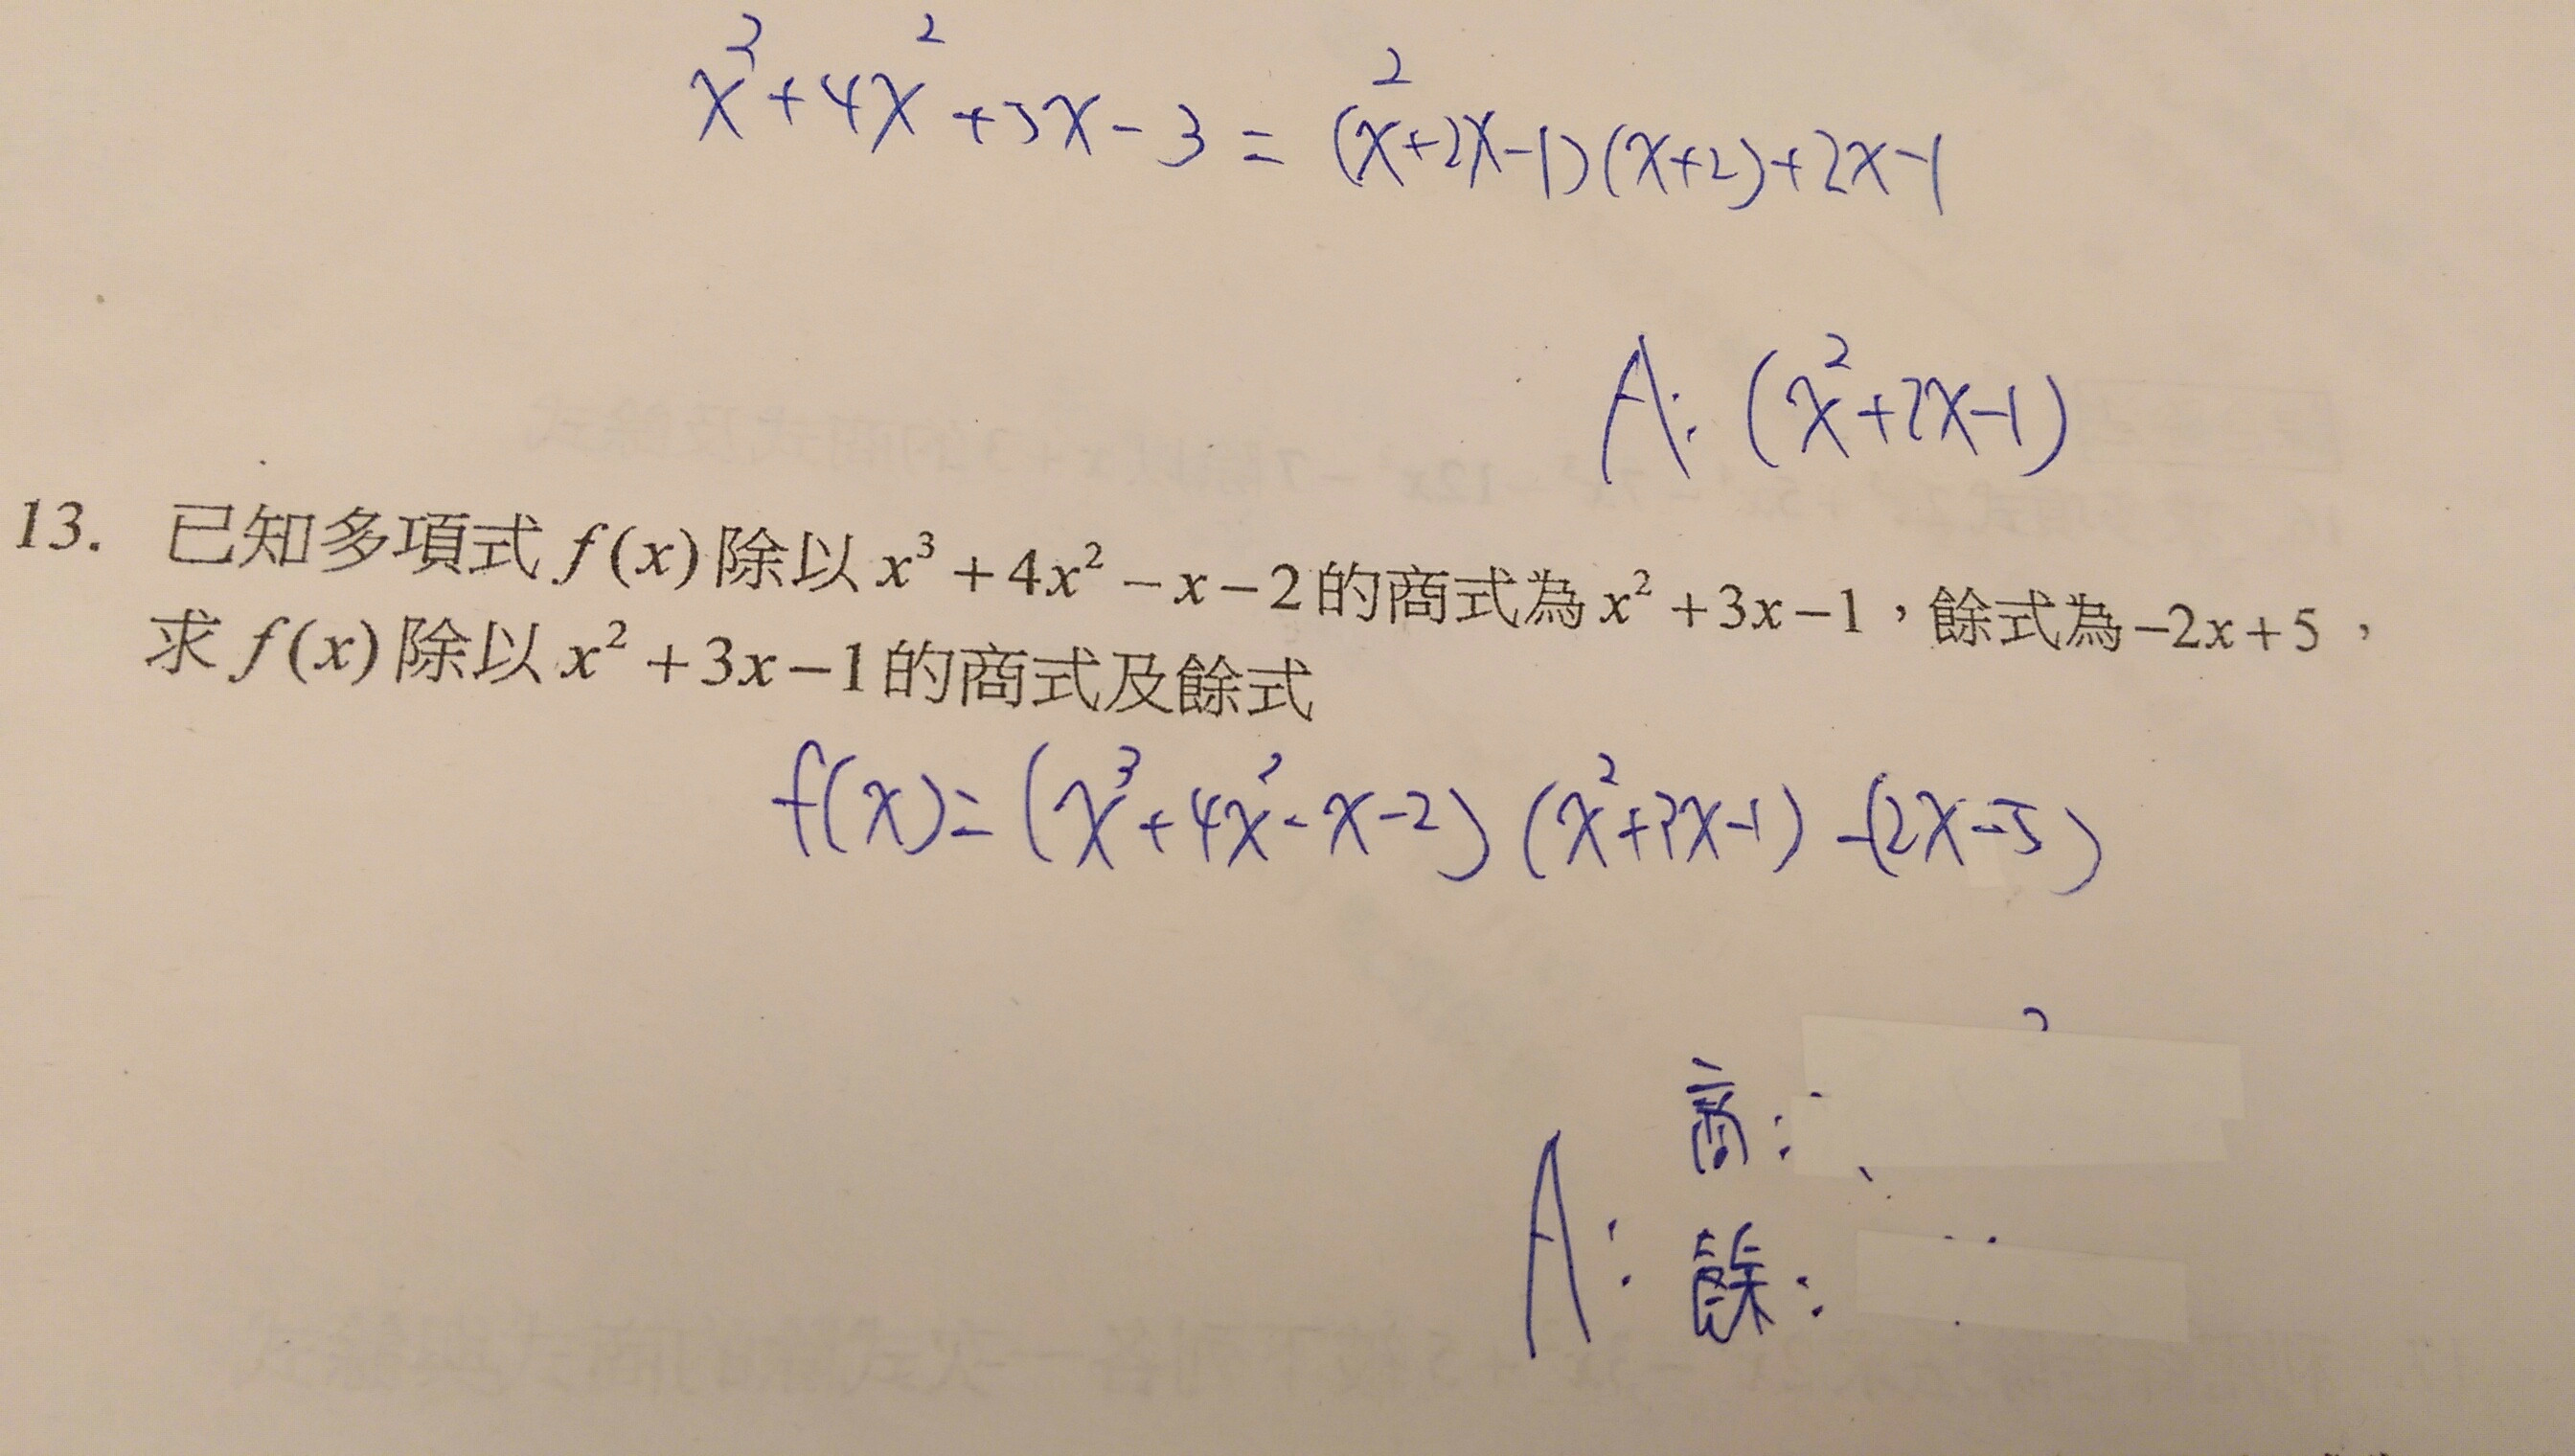 x³+4x²+3x-3=(x²+2x-1)(x+2)+2x-1
A:(x²+2x-1)
13. 已知多項式 f(x) 除以 x³+4x²-x-2 的商式為 x²+3x-1,餘式為 -2x+5,
求 f(x) 除以 x²+3x-1 的商式及餘式
f(x)=(x³+4x²-x-2)(x²+3x-1)-(2x-5)
商:
A:
餘: